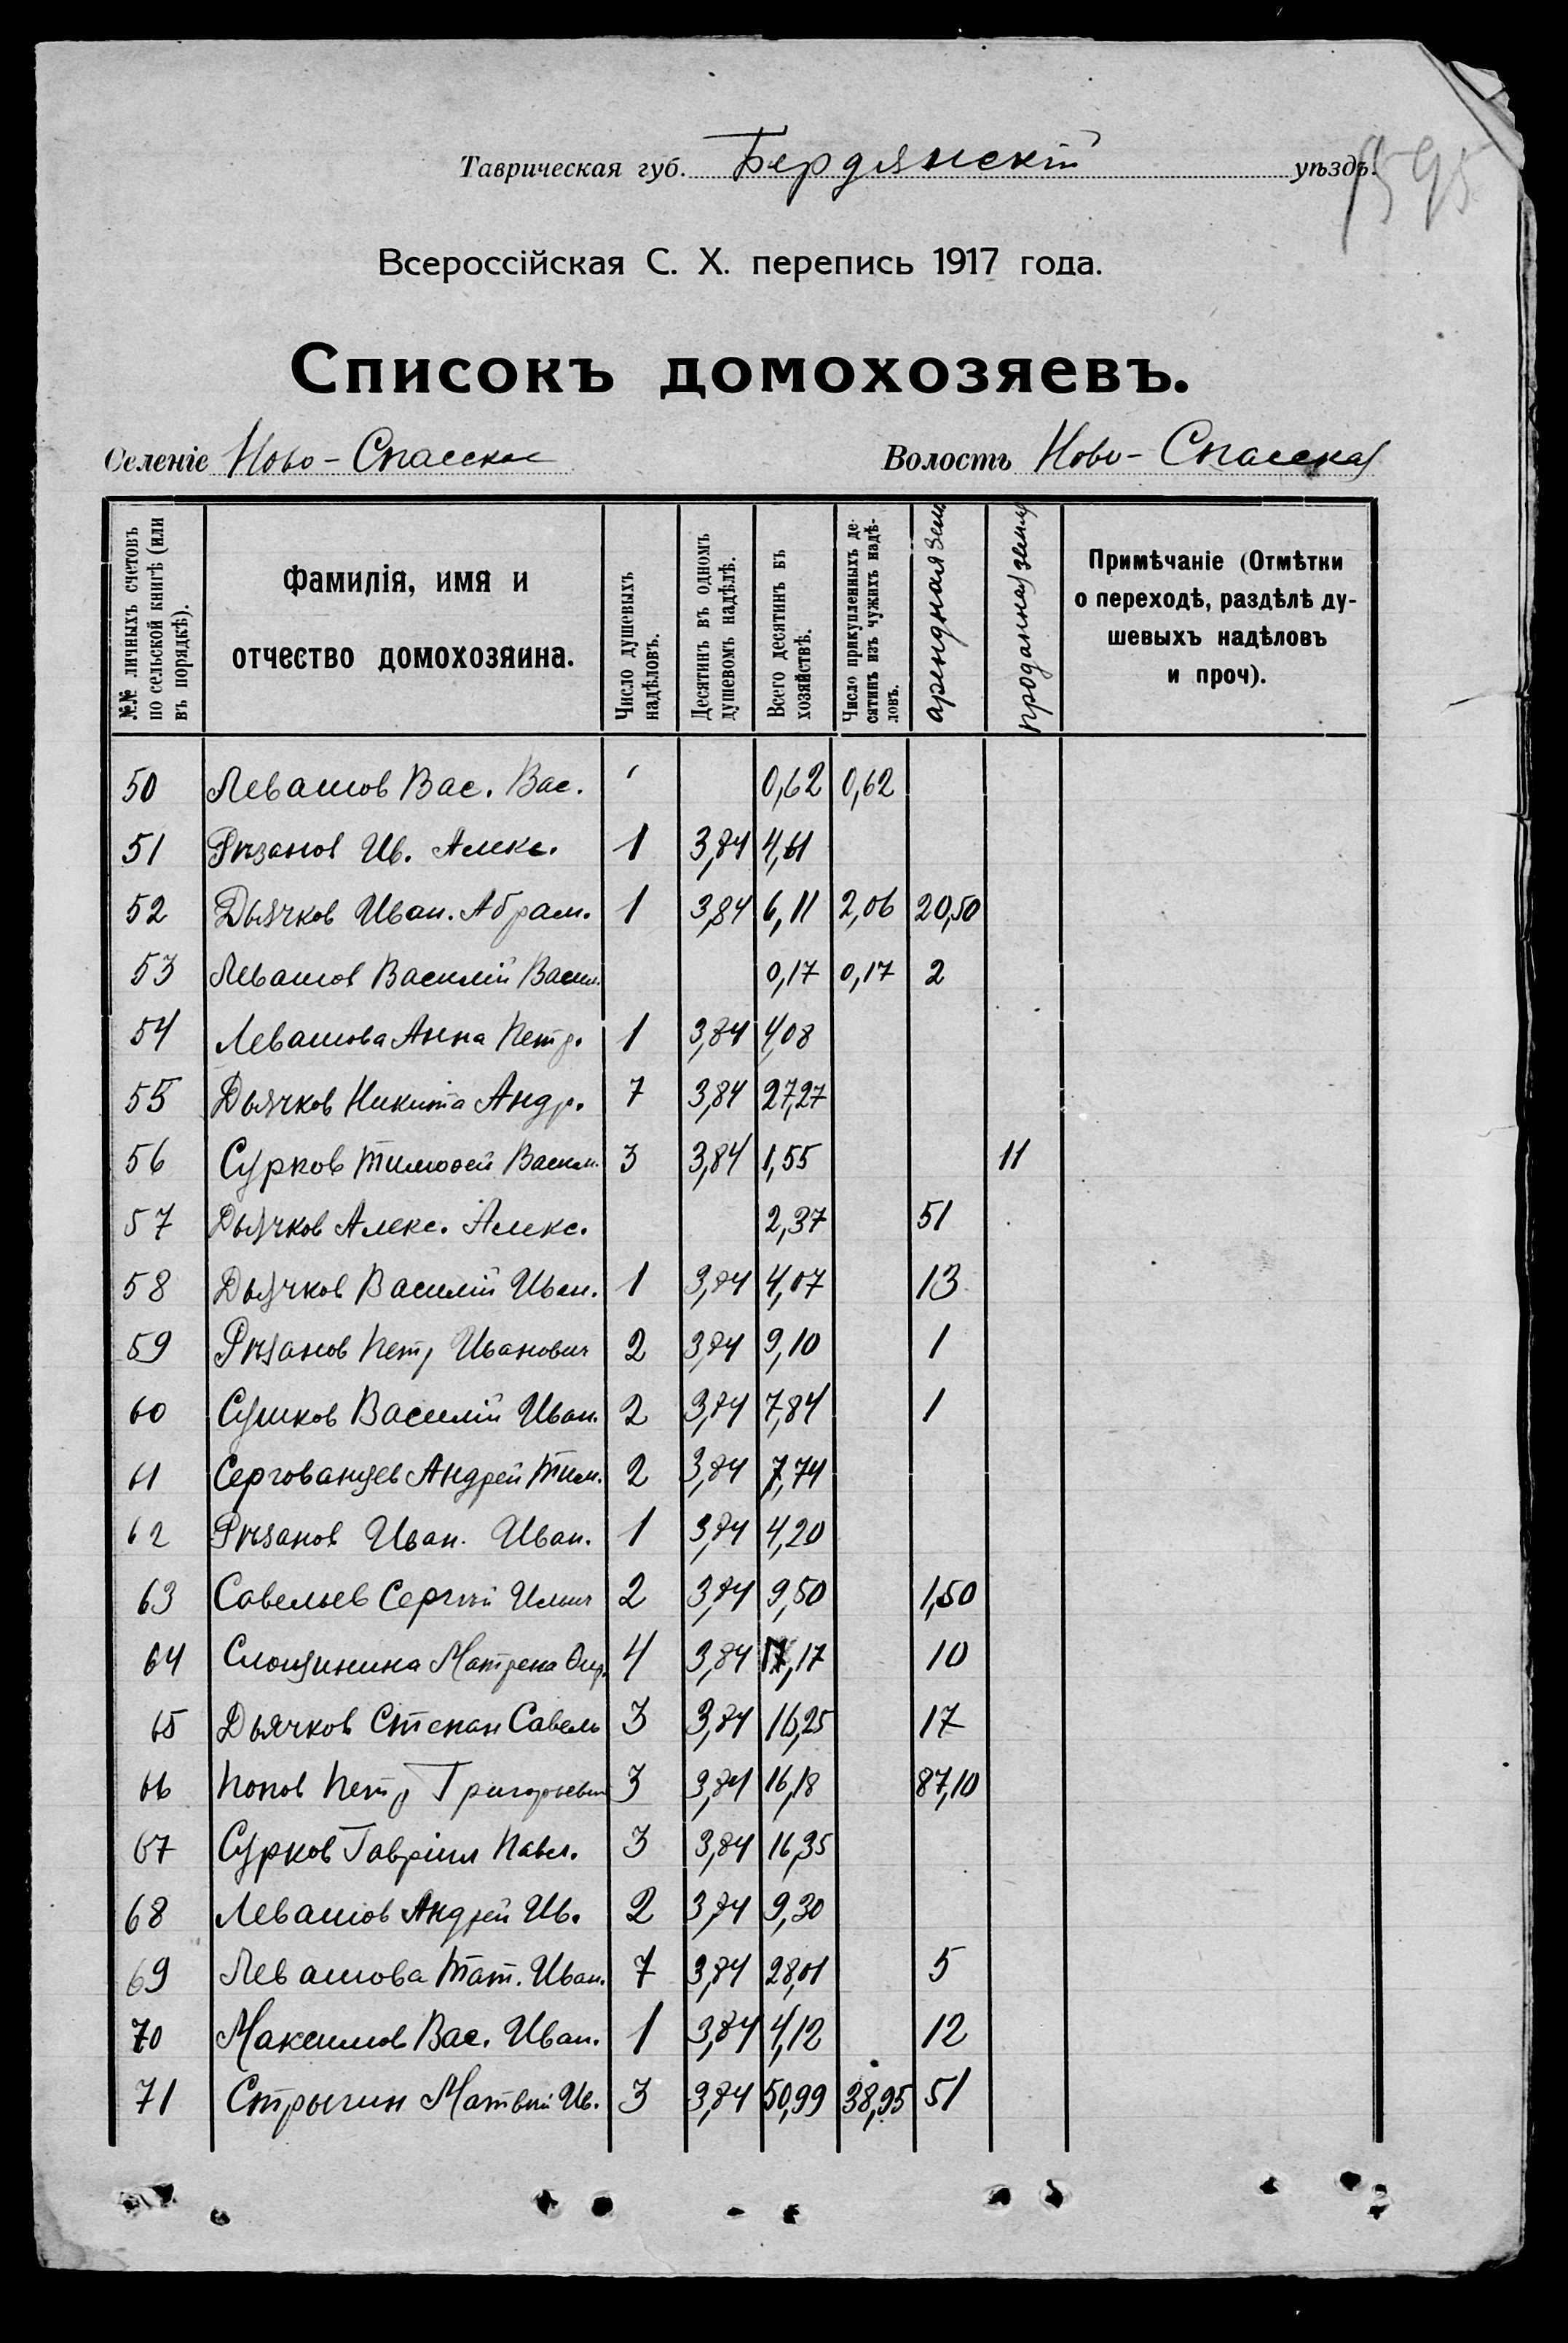 595
Таврическая губ. Бердянскій уѣздъ.
Всероссійская С. Х. перепись 1917 года.
Списокъ домохозяевъ.
Селеніе Ново-Спасское Волость Ново-Спасская
№№ личныхъ счетовъ по сельской книгѣ (или въ порядкѣ).
Фамилія, имя и отчество домохозяина.
Число душевыхъ надѣловъ.
Десятинъ въ одномъ душевомъ надѣлѣ.
Всего десятинъ въ хозяйствѣ.
Число прикупленныхъ десятинъ изъ чужихъ надѣловъ.
арендная земл
проданная земля
Примѣчаніе (Отмѣтки о переходѣ, раздѣлѣ душевыхъ надѣловъ и проч).
50 Левашов Вас. Вас. 0,62 0,62
51 Рѣзанов Ив. Алекс. 1 3,84 4,61
52 Дьячков Иван. Абрам. 1 3,84 6,11 2,06 20,50
53 Левашов Василій Васил. 0,17 0,17 2
54 Левашова Анна Петр. 1 3,84 4,08
55 Дьячков Никита Андр. 7 3,84 27,27
56 Сурков Тимофей Васил. 3 3,84 1,55 11
57 Дьячков Алекс. Алекс. 2,37 51
58 Дьячков Василій Иван. 1 3,84 4,07 13
59 Рѣзанов Петр Иванович 2 3,84 9,10 1
60 Сушков Василій Иван. 2 3,84 7,84 1
61 Серговანцев Андрей Тим. 2 3,84 7,74
62 Рѣзанов Иван. Иван. 1 3,84 4,20
63 Савельев Сергѣй Ильич 2 3,84 9,50 1,50
64 Матрена 4 3,84 17,17 10
65 Дьячков Степан Савель 3 3,84 16,25 17
66 Попов Петр Григорьевич 3 3,84 16,18 87,10
67 Сурков Гавріил Павл. 3 3,84 16,35
68 Левашов Андрей Ив. 2 3,84 9,30
69 Левашова Тат. Иван. 7 3,84 28,01 5
70 Максимов Вас. Иван. 1 3,84 4,12 12
71 Стрыгин Матвѣй Ив. 3 3,84 50,99 38,95 51